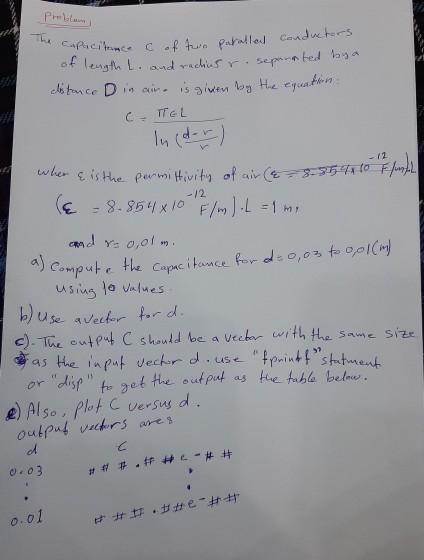 Problem,
The capacitance C of two parallel conductors
of length L. and rachius r. separated by a
distance D in air. is given by the equation:
C = πεL
ln (d-r
r)
wher ε is the permittivity of air (ε = 8.854x10^-12 F/m).L
(ε = 8.854x10^-12 F/m).L = 1 m,
and r= 0,01 m.
a) Compute the Capacitance for d=0,03 to 0,01(m)
using 10 values.
b) Use avector for d.
c). The output C should be a vector with the same size
as the input vector d. use "fprintf" statment
or "disp" to get the output as the table below.
e) Also, plot C versus d.
output vectors are:
d C
0.03 ###.##e-##
: :
0.01 ###.##e-##